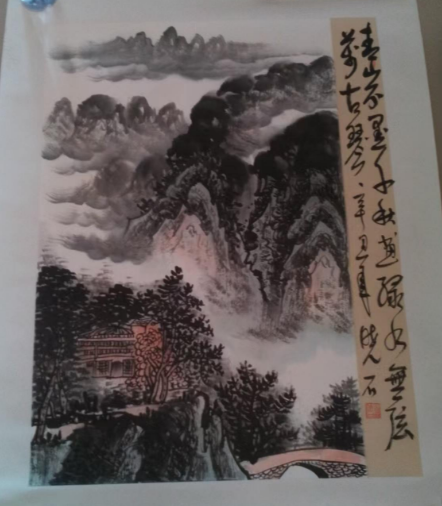 青山不墨千秋画绿水無弦
萬古琴辛丑年曉石